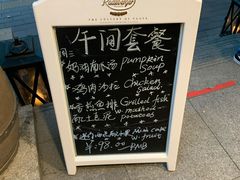 THE CULTURE OF TASTE
午间套餐
周三
奶油南瓜汤 Pumpkin
Soup
鸡肉沙拉 Chicken
Salad
香煎鱼排 Grilled fish
配土豆泥 w. mashed
potatoes
cake
w. fruit
￥98.00 RMB